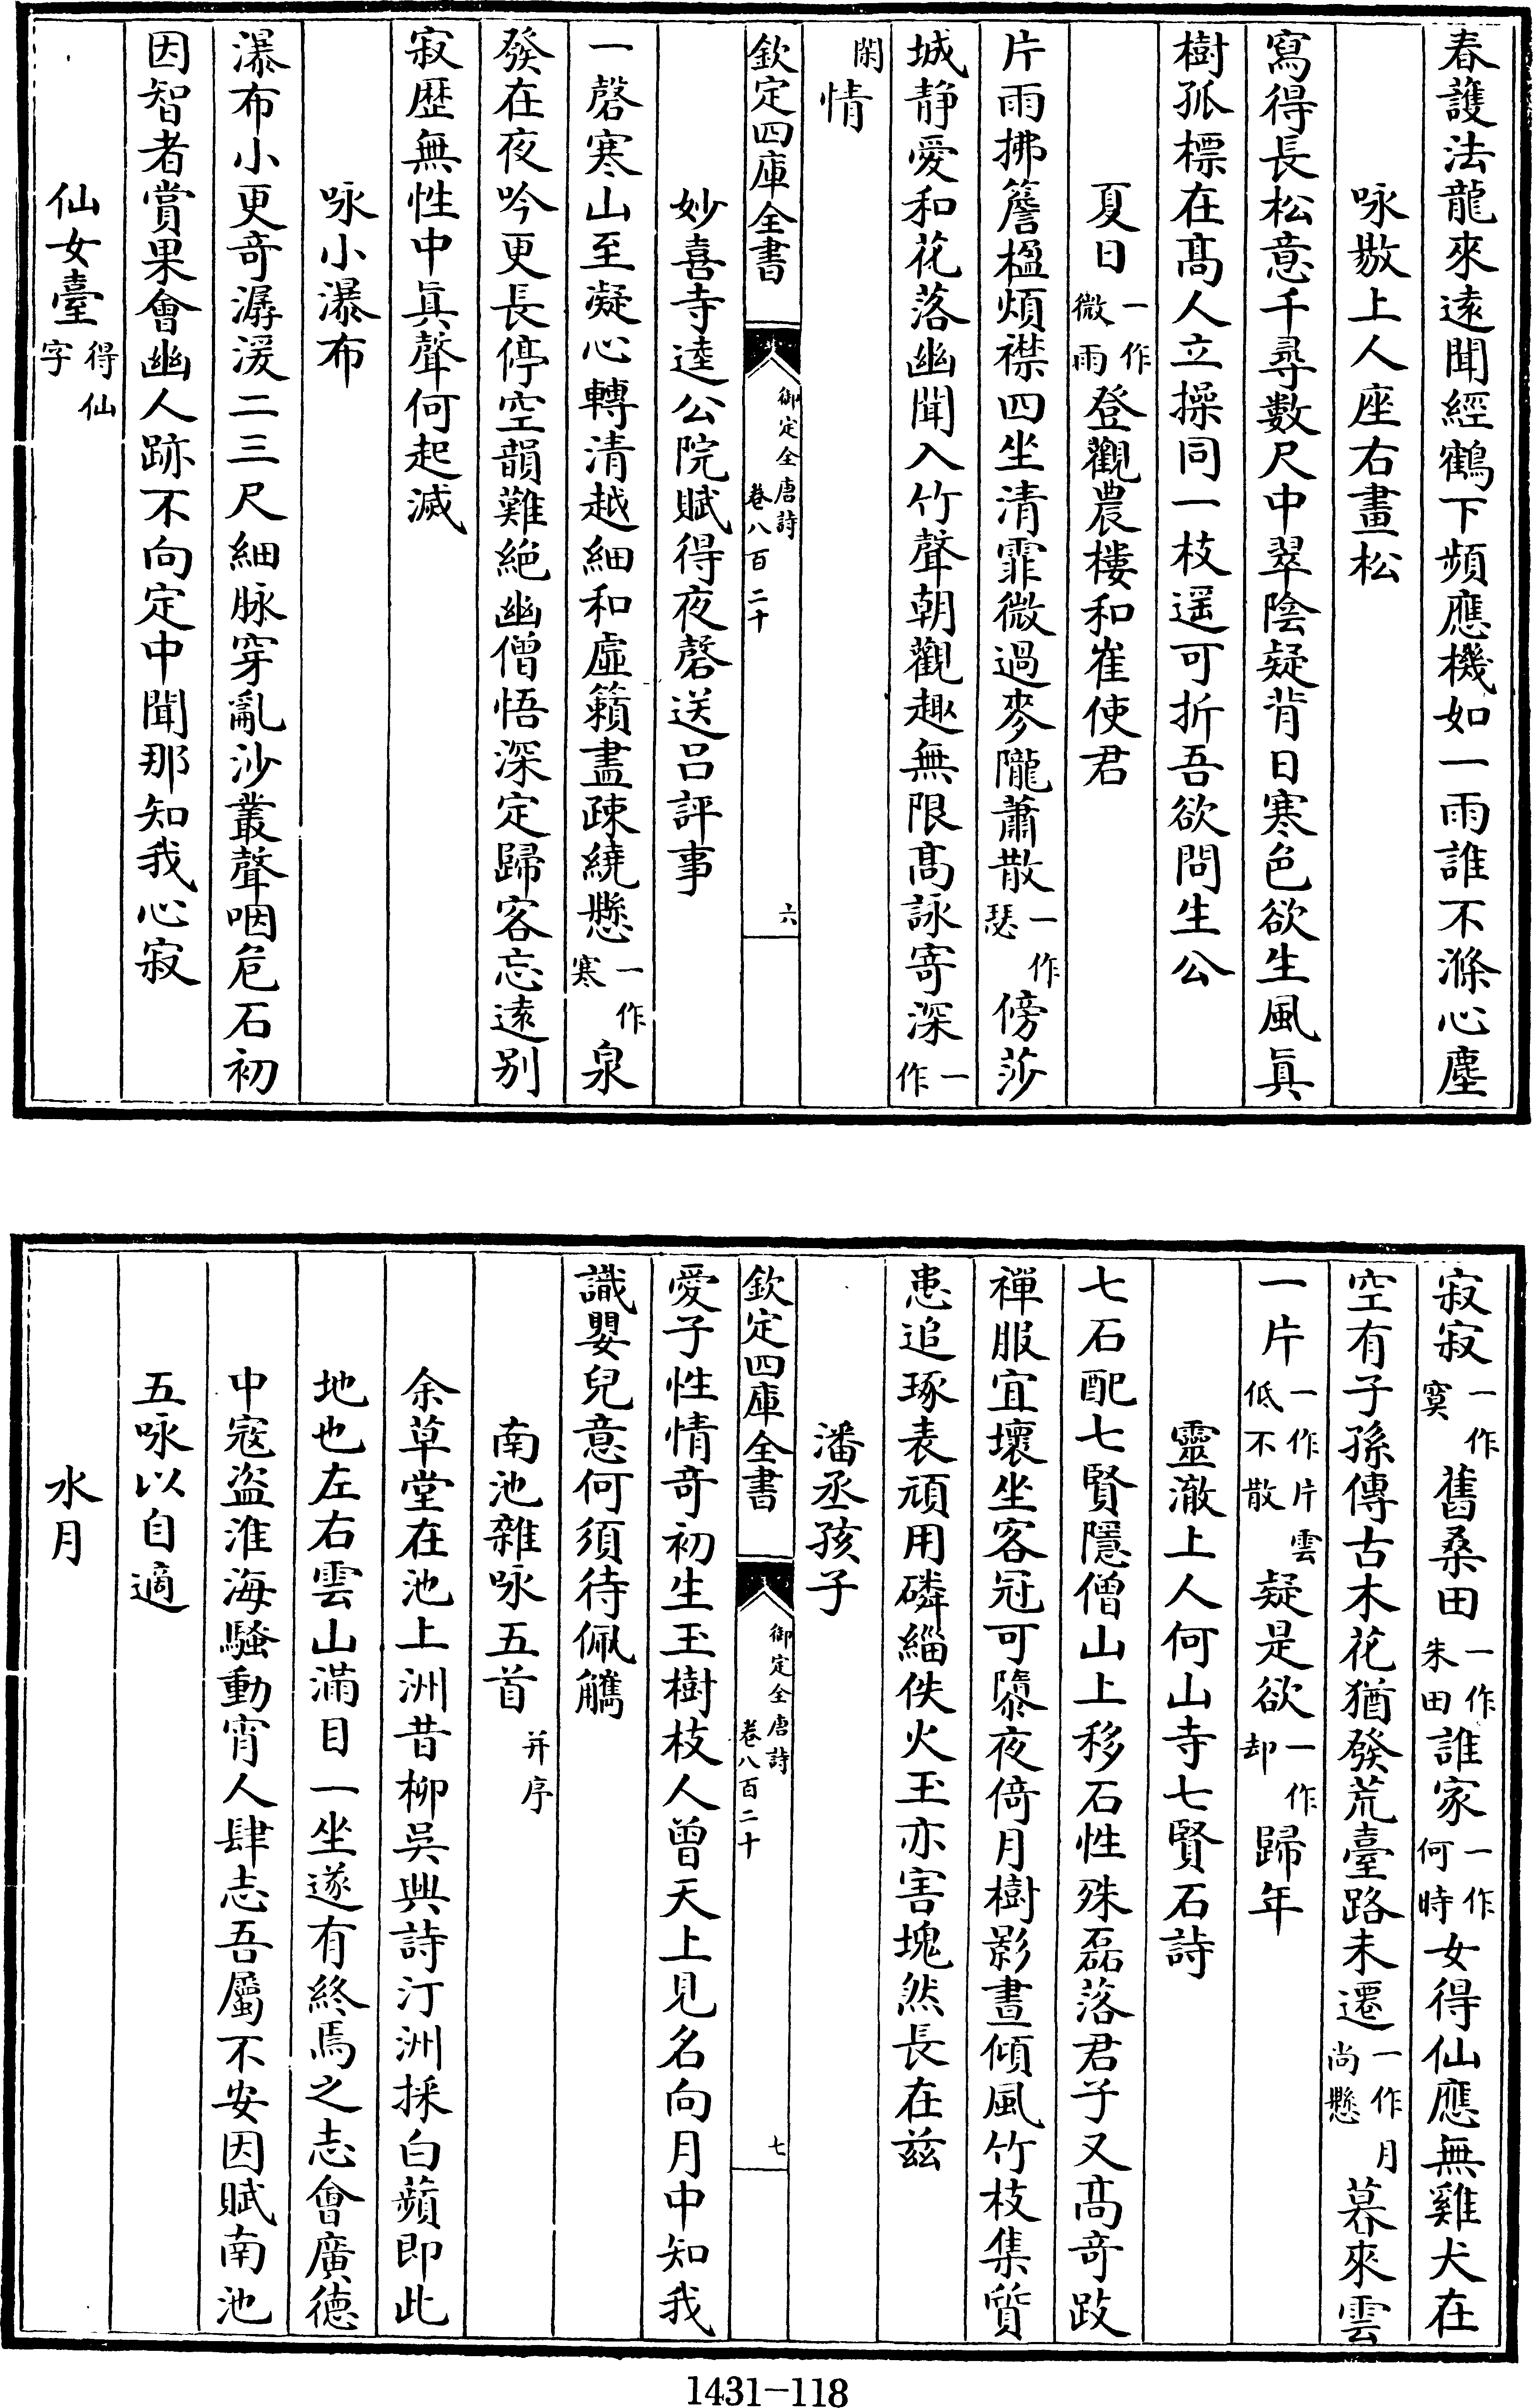 春護法龍來逺聞經鶴下頻應機如一雨誰不滌心塵
咏敭上人座右畫松
寫得長松意千尋數尺中翠陰疑背日寒色欲生風眞
樹孤標在髙人立操同一枝遥可折吾欲問生公
夏日一作微雨登觀農樓和崔使君
片雨拂簷楹煩襟四坐清霏微過麥隴蕭散一作瑟傍莎
城静愛和花落幽聞入竹聲朝觀趣無限髙詠寄深一作
閑情
欽定四庫全書
御定全唐詩
卷八百二十
六
妙喜寺逵公院賦得夜磬送吕評事
一磬寒山至凝心轉清越細和虛籟盡疎繞懸一作寒泉
發在夜吟更長停空韻難絶幽僧悟深定歸客忘逺别
寂歴無性中眞聲何起滅
咏小瀑布
瀑布小更奇潺湲二三尺細脉穿亂沙叢聲咽危石初
因智者賞果會幽人跡不向定中聞那知我心寂
仙女臺得仙字
寂寂一作寞舊桑田一作朱田誰家一作何時女得仙應無雞犬在
空有子孫傳古木花猶發荒臺路未遷一作月尚懸暮來雲
一片一作片雲低不散疑是欲一作却歸年
靈澈上人何山寺七賢石詩
七石配七賢隱僧山上移石性殊磊落君子又髙奇跂
禪服宜壞坐客冠可隳夜倚月樹影晝傾風竹枝集質
患追琢表頑用磷緇佚火玉亦害塊然長在兹
潘丞孩子
欽定四庫全書
御定全唐詩
卷八百二十
七
愛子性情奇初生玉樹枝人曾天上見名向月中知我
識嬰兒意何須待佩觿
南池雜咏五首并序
余草堂在池上洲昔柳吳興詩汀洲採白蘋即此
地也左右雲山滿目一坐遂有終焉之志會廣德
中寇盗淮海騷動宵人肆志吾屬不安因賦南池
五咏以自適
水月
1431—118